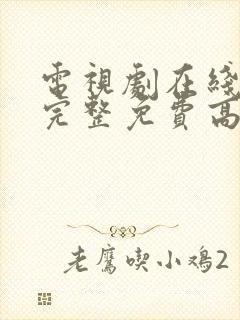 電視劇在綫
完整免費高
老鷹喫小鴻2